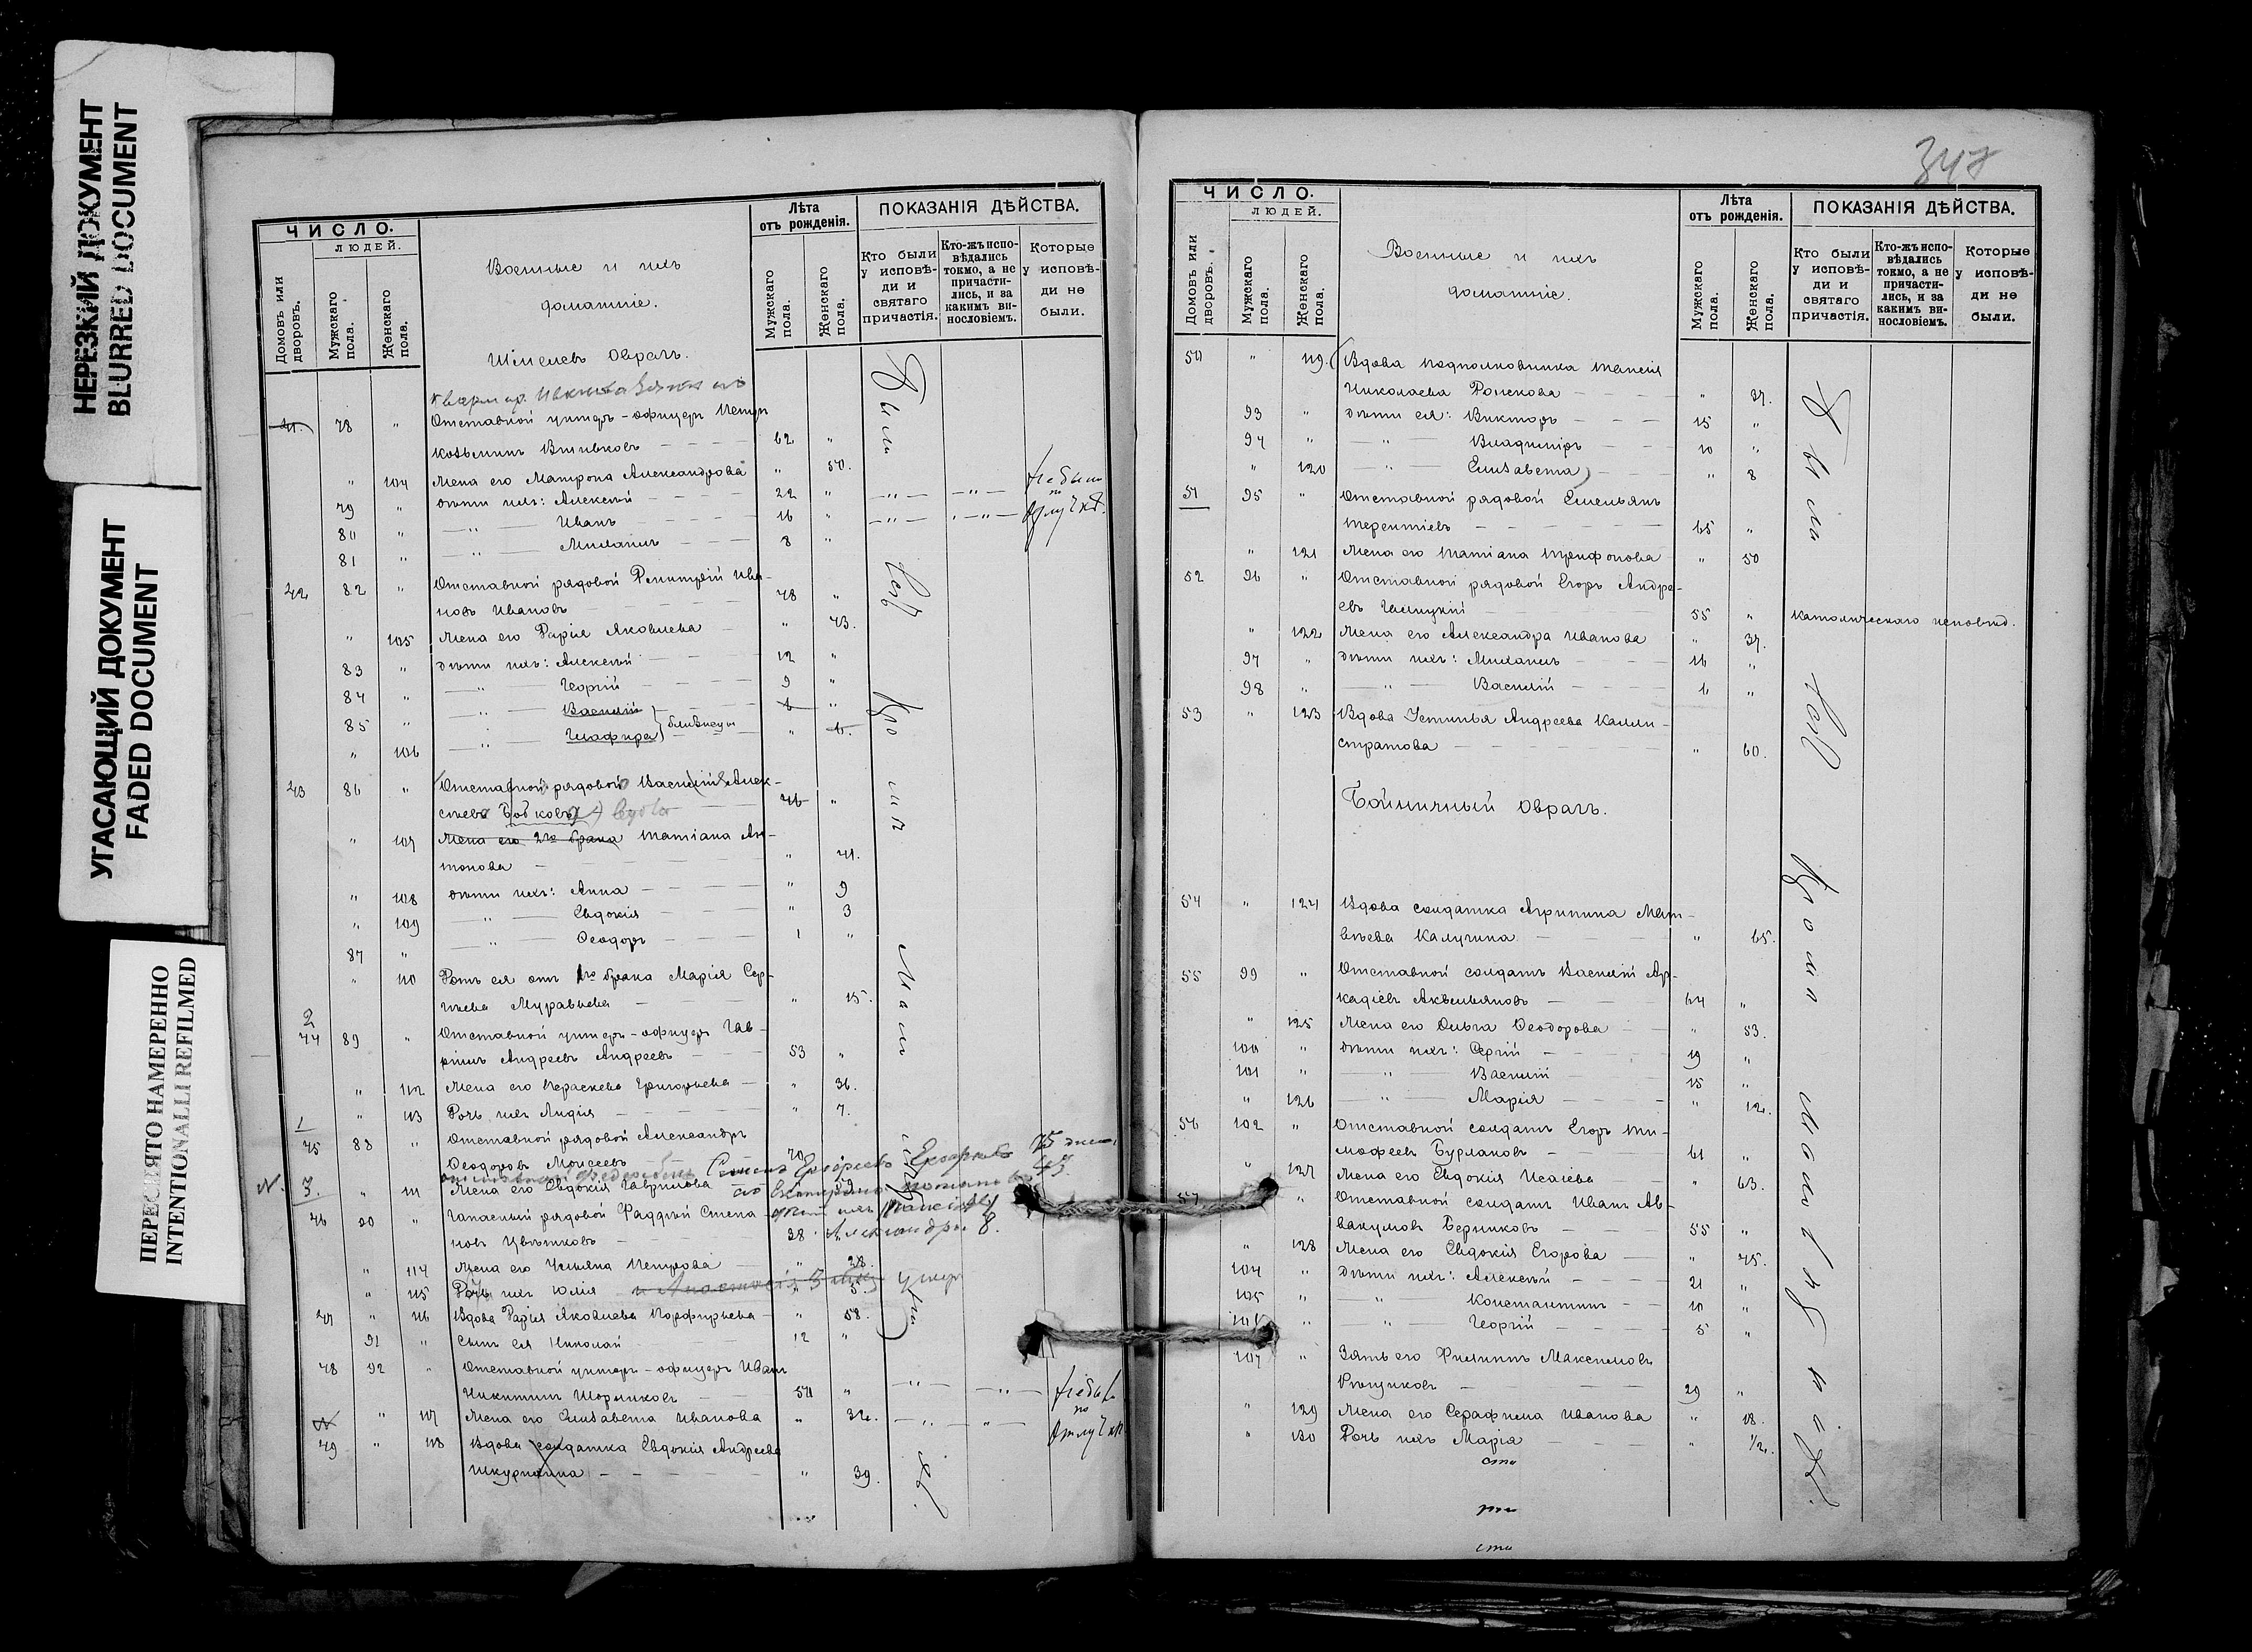 НЕРЕЗКИЙ ДОКУМЕНТ
BLURRED DOCUMENT
УГАСАЮЩИЙ ДОКУМЕНТ
FADED DOCUMENT
ПЕРЕСНЯТО НАМЕРЕННО
INTENTIONALLI REFILMED
ЧИСЛО.
ЛЮДЕЙ.
Домовъ или дворовъ.
Мужскаго пола.
Женскаго пола.
Военные и ихъ
домашніе.
Лѣта
отъ рожденія.
Мужскаго пола.
Женскаго пола.
ПОКАЗАНІЯ ДѢЙСТВА.
Кто были у исповѣди и святаго причастія.
Кто-жъ исповѣдались токмо, а не причастились, и за какимъ винословіемъ.
Которые у исповѣди не были.
Оврагъ.
41. 78 " Отставной унтеръ-офицеръ Петръ
Козьминъ 62 "
" 104 Жена его Матрона Александрова " 50.
79 " дѣти ихъ: Алексѣй 22 "
80 " Иванъ 16 "
81 " Михаилъ 8 "
42 82 " Отставной рядовой Димитрій Ива-
новъ Ивановъ 48 "
" 105 Жена его Дарія Яковлева " 43.
83 " дѣти ихъ: Алексѣй 12 "
84 " Георгій 9 "
85 " Василій 6 "
" 106 Глафира близнецы " 6.
43 86 " Отставной рядовой Василій Алек-
сѣевъ 46 "
" 107 Жена его 2го брака Татіана Ан-
тонова " 41.
" 108 дѣти ихъ: Анна " 9
" 109 Евдокія " 3
87 " Ѳеодоръ 1 "
" 110 Дочь ея отъ 1го брака Марія Сер-
гѣева Муравьева " 15.
2
44 89 " Отставной унтеръ-офицеръ Гав-
рилъ Андреевъ Андреевъ 53 "
" 112 Жена его Параскева Григорьева " 36.
" 113 Дочь ихъ Лидія " 7.
1
45 88 " Отставной рядовой Александръ
Ѳеодоровъ Моисеевъ 70
3. " 111 Жена его Евдокія Гаврилова 59
46 90 " Запасный рядовой Фаддѣй Степа-
новъ Цвѣтковъ 28
" 114 Жена его Ульяна Петрова " 28.
" 115 Дочь ихъ Юлія " 5.
47 " 116 Вдова Дарія Яковлева Порфирьева " 58.
91 " Сынъ ея Николай 12 "
48 92 " Отставной унтеръ-офицеръ Иванъ
Никитинъ Шорниковъ 50 "
" 117 Жена его Елизавета Иванова " 32.
49 " 118 Вдова солдатка Евдокія Андреева
" 39.
347
ЧИСЛО.
ЛЮДЕЙ.
Домовъ или дворовъ.
Мужскаго пола.
Женскаго пола.
Военные и ихъ
домашніе.
Лѣта
отъ рожденія.
Мужскаго пола.
Женскаго пола.
ПОКАЗАНІЯ ДѢЙСТВА.
Кто были у исповѣди и святаго причастія.
Кто-жъ исповѣдались токмо, а не причастились, и за какимъ винословіемъ.
Которые у исповѣди не были.
50 " 119. Вдова подполковника Таисія
Николаева " 37.
93 " дѣти ея: Викторъ 15 "
94 " Владиміръ 10 "
" 120 Елизавета " 8
51 95 " Отставной рядовой Емельянъ
Терентіевъ 65 "
" 121 Жена его Татіана Трифонова " 50
52 96 " Отставной рядовой Егоръ Андре-
евъ 55 " католическаго исповѣд.
" 122 Жена его Александра Иванова " 37.
97 " дѣти ихъ: Михаилъ 16 "
98 " Василій 6 "
53 " 123 Вдова Устинья Андреева Калли-
стратова " 60.
Оврагъ.
54 " 124 Вдова солдатка Агрипина Мат-
вѣева Калугина " 65.
55 99 " Отставной солдатъ Василій Ар-
кадіевъ 64 "
" 125 Жена его Ольга Ѳеодорова " 53.
100 " дѣти ихъ: Сергій 19 "
101 " Василій 15 "
" 126 Марія " 12.
56 102 " Отставной солдатъ Егоръ Ти-
мофеевъ Бурлаковъ 61 "
" 127 Жена его Евдокія Исаіева " 63.
57 " Отставной солдатъ Иванъ Ав-
вакумовъ 55 "
" 128 Жена его Евдокія Егорова " 45.
104 " дѣти ихъ: Алексѣй 21 "
105 " Константинъ 10 "
" Георгій 5 "
107 " Зять его Филиппъ Максимовъ
29 "
" 129 Жена его Серафима Иванова " 18.
" 130 Дочь ихъ Марія " 1/2.